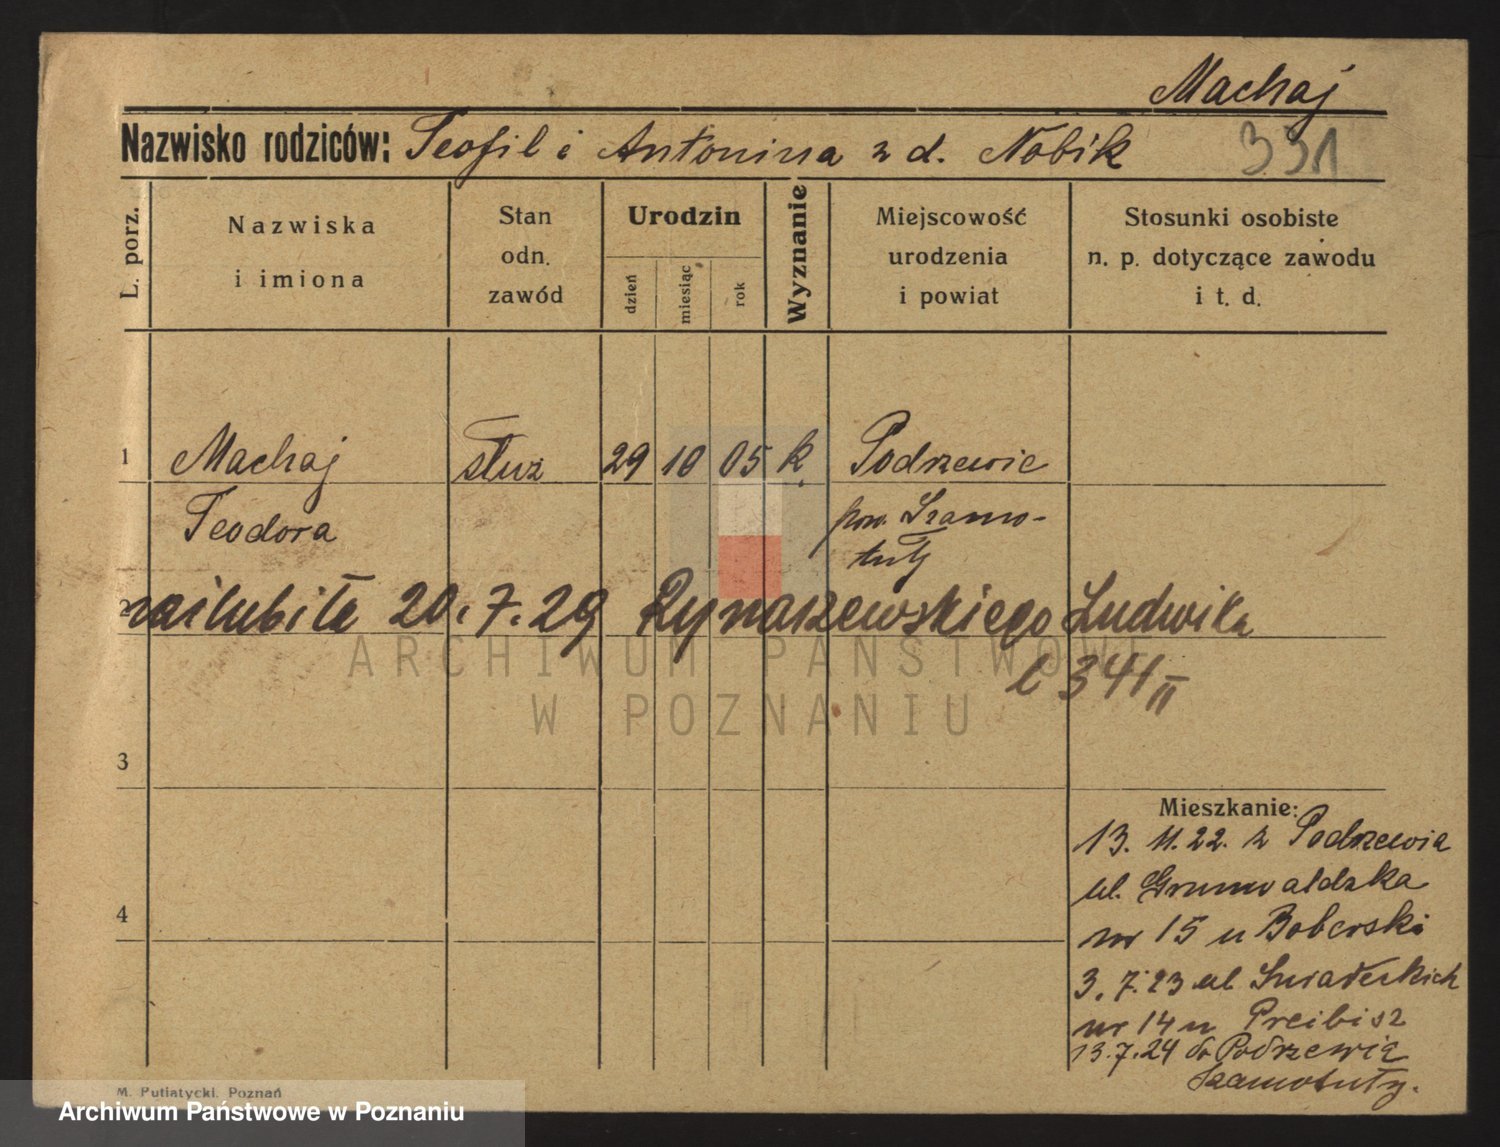 Machaj
Nazwisko rodziców: Teofil i Antonina z d. Nobik
331
L. porz.
Nazwiska
i imiona
Stan
odn.
zawód
Urodzin
dzień
miesiąc
rok
Wyznanie
Miejscowość
urodzenia
i powiat
Stosunki osobiste
n. p. dotyczące zawodu
i t. d.
1 Machaj służ 29 10 05 k. Podrzewie
Teodora pow. Szamo-
tuły
2 zaślubiła 20.7.29 Rynarzewskiego Ludwika
l 341 II
ARCHIWUM PAŃSTWOWE
W POZNANIU
3
Mieszkanie:
13. 11. 22. z Podrzewia
ul. Grunwaldzka
nr 15 u Boberski
4
3. 7. 23 ul Śniadeckich
nr 14 u Preibisz
13.7.24 do Podrzewia
Szamotuły.
M. Putiatycki. Poznań
Archiwum Państwowe w Poznaniu